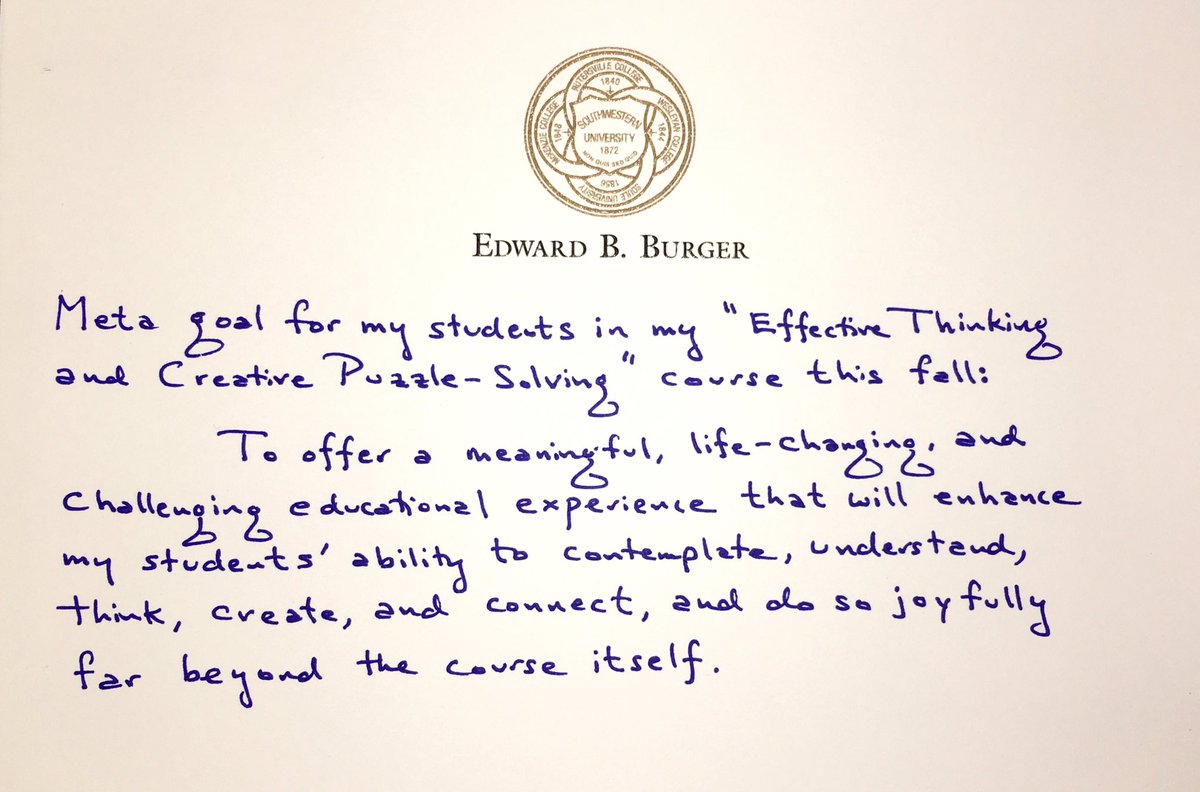 RUTERSVILLE COLLEGE
1840
WESLEYAN COLLEGE
1844
SOULE UNIVERSITY
1856
MCKENZIE COLLEGE
1848
SOUTHWESTERN
UNIVERSITY
1872
NON QUIS SED QUID
EDWARD B. BURGER
Meta goal for my students in my "Effective Thinking
and Creative Puzzle-Solving" course this fall:
To offer a meaningful, life-changing, and
challenging educational experience that will enhance
my students' ability to contemplate, understand,
think, create, and connect, and do so joyfully
far beyond the course itself.